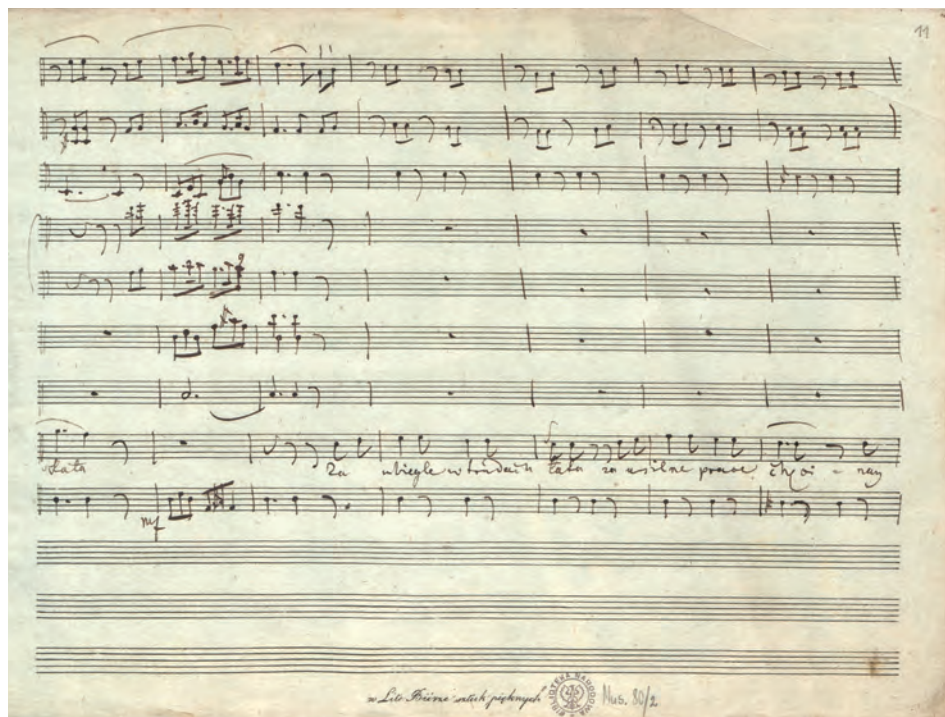 11
łata Za ubiegłe w trudach łata za usilne prace
mf
w Lito Piśmie sztuk pięknych
BIBLIOTEKA NARODOWA
Mus. 80/2